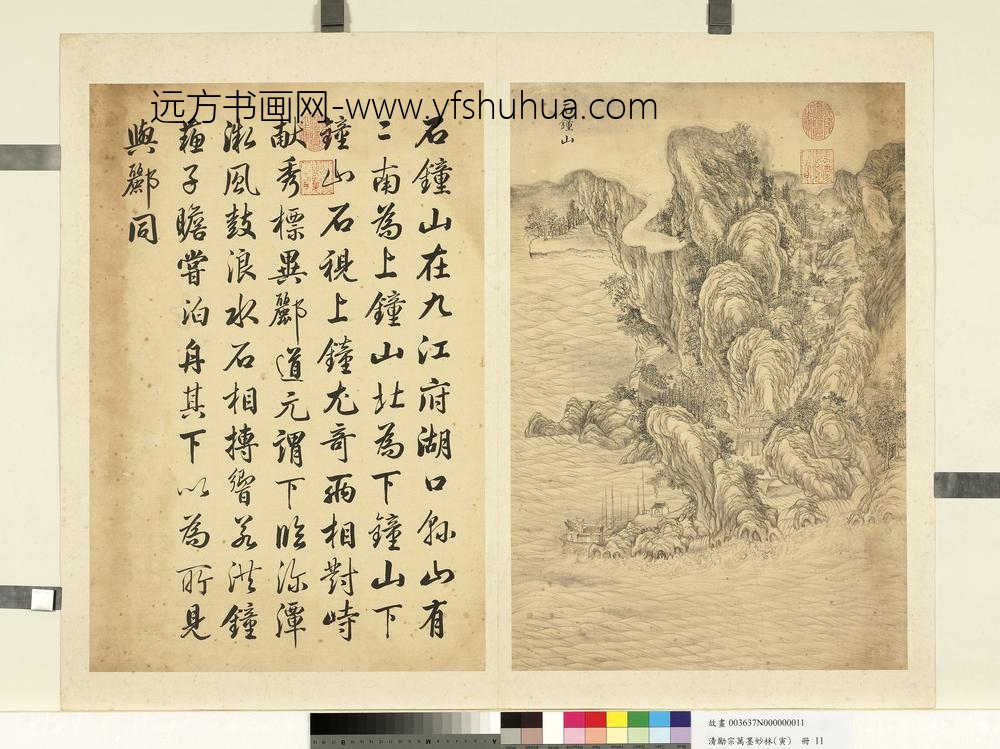 远方书画网-www.yfshuhua.com
石鐘山在九江府湖口縣山有
二南為上鐘山北為下鐘山下
鐘山石視上鐘尤奇兩相對峙
献秀標異酈道元謂下臨深潭
微風鼓浪水石相搏響若洪鐘
蘇子瞻嘗泊舟其下以為所見
與酈同
鐘山
故畫 003637N000000011
清勵宗萬墨妙林(寅) 冊 11